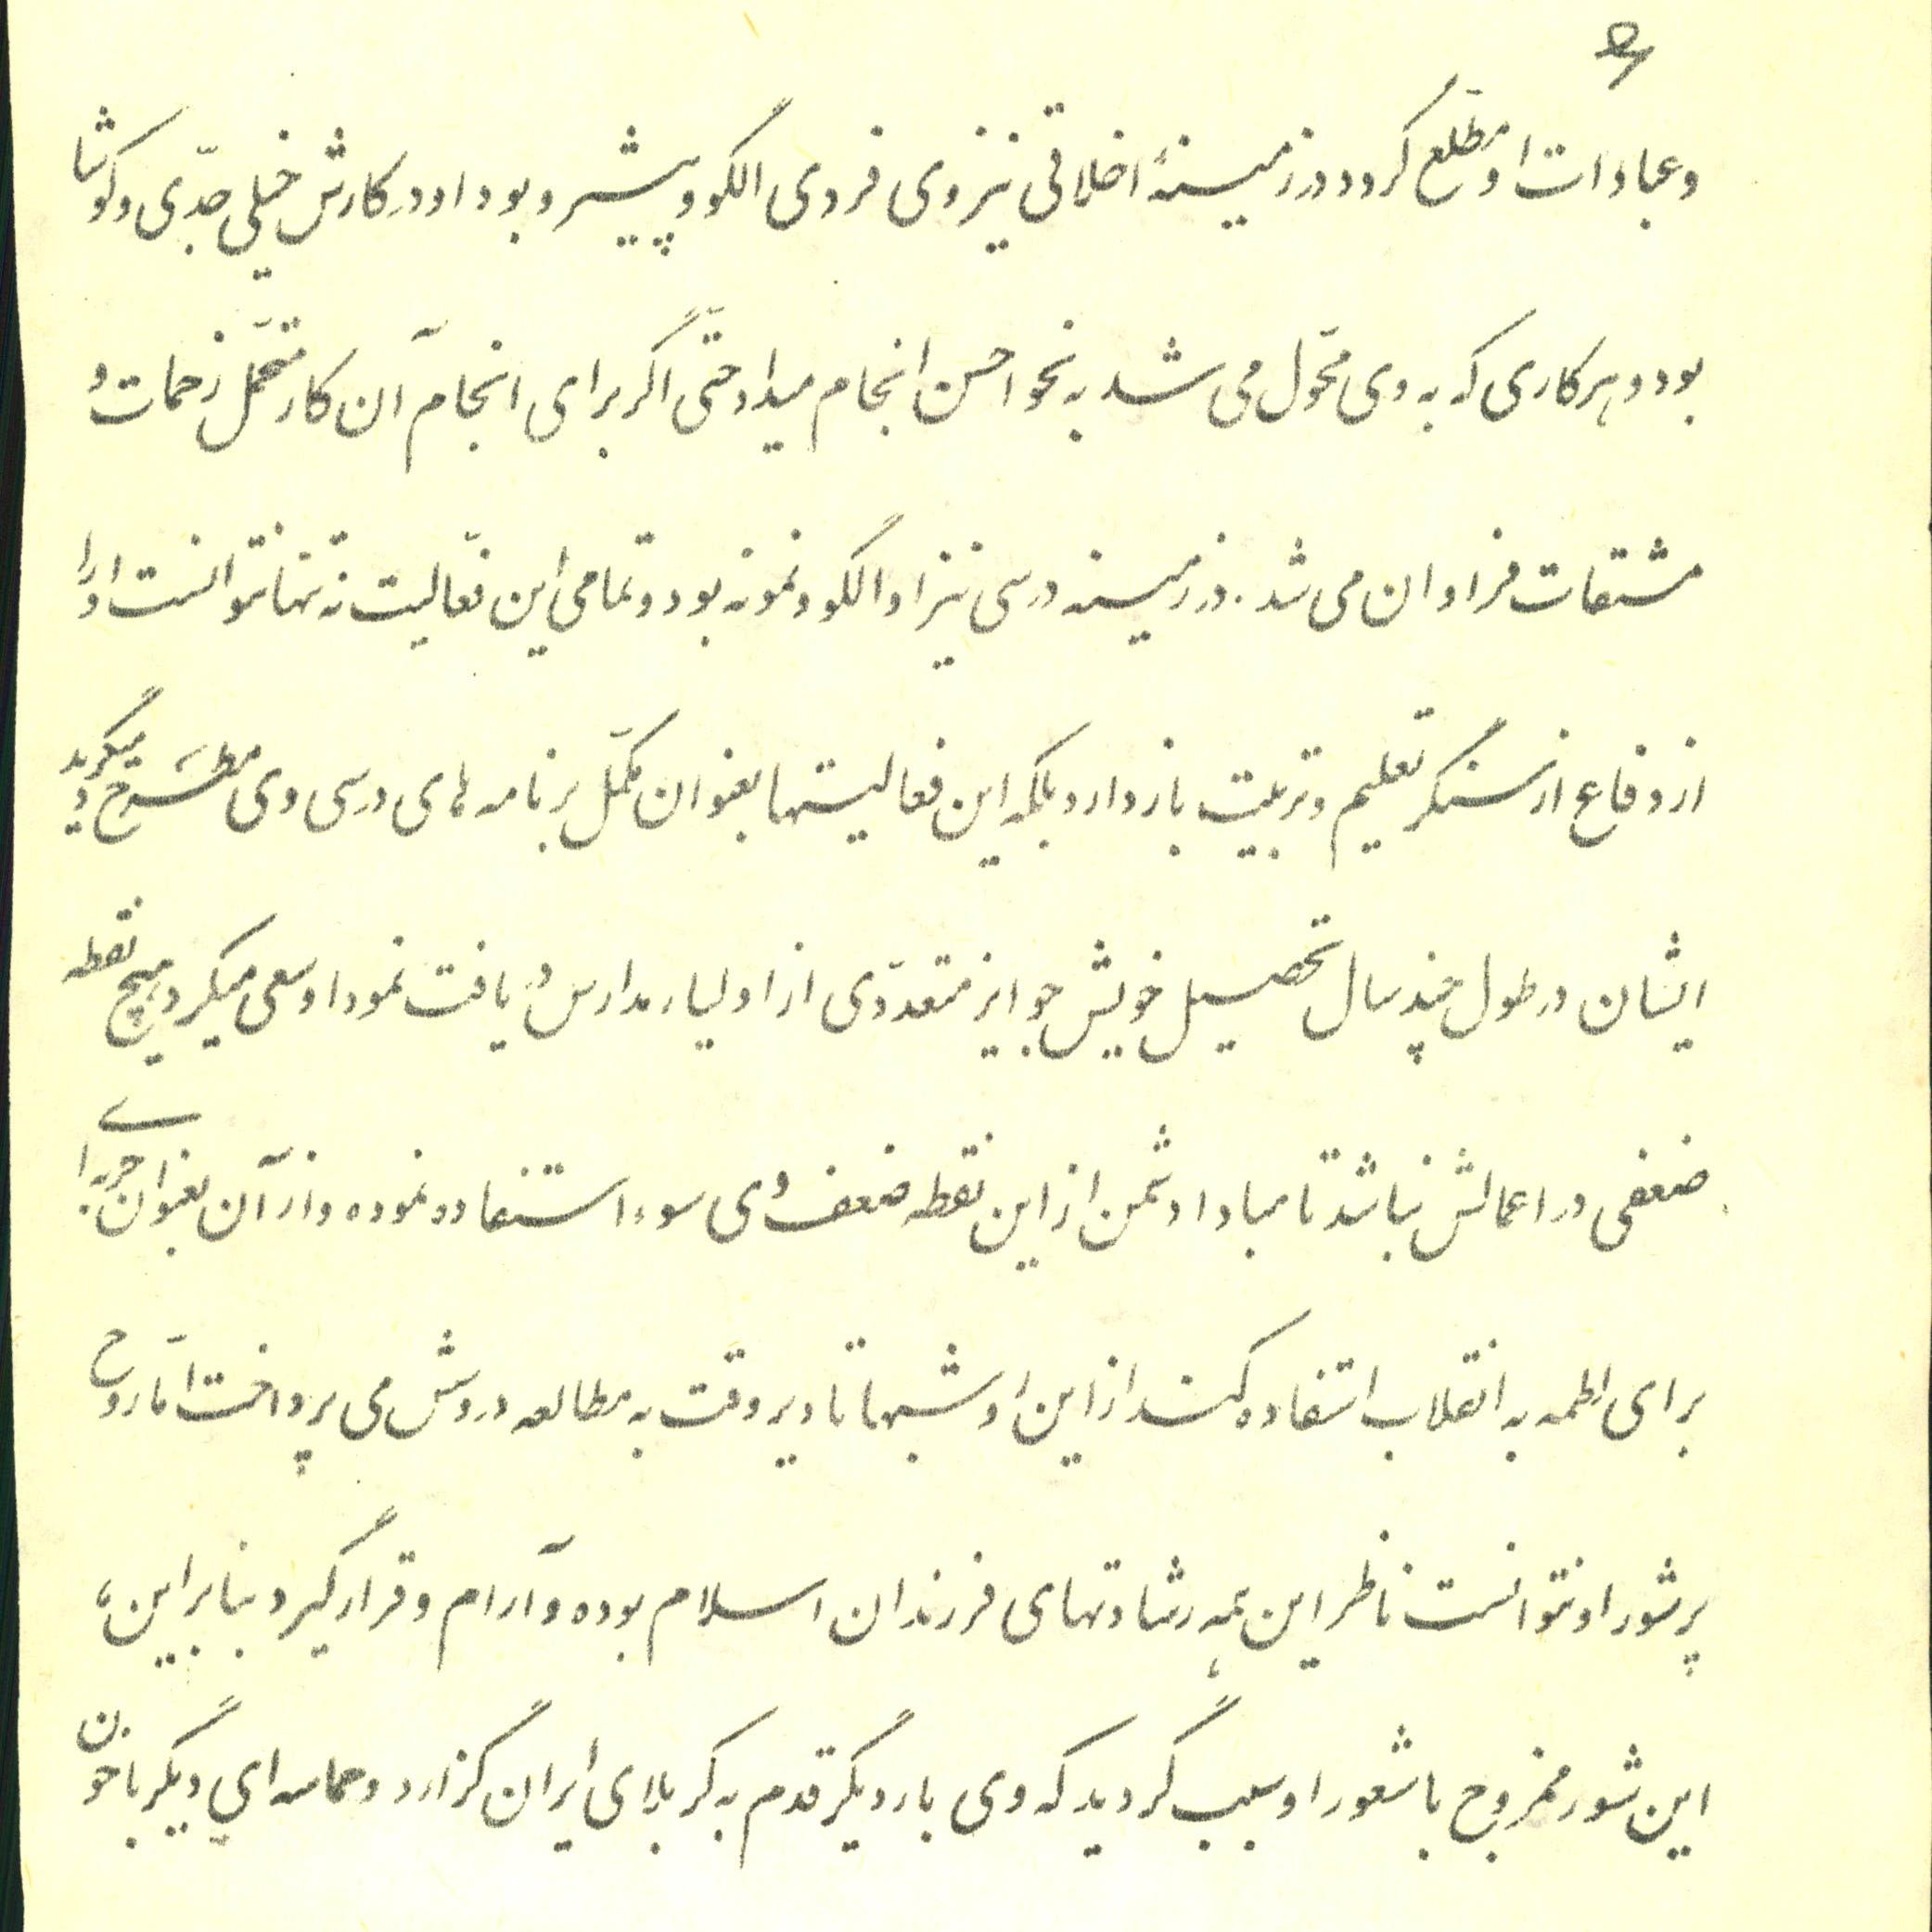 و عبادات او مطّلع کرد و در زمینهٔ اخلاقی نیز وی فردی الگو و پیشرو بود او در کارش خیلی جدّی و کوشا
بود و هر کاری که به وی محّول می شد به نحو احسن انجام میداد حتّی اگر برای انجام آن کار متحمّل زحمات و
مشقات فراوان می شد. در زمینه درسی نیز او الگو و نمونه بود و تمامی این فعّالیت نه تنها نتوانست او را
از دفاع از سنگر تعلیم و تربیت باز دارد بلکه این فعالیتها بعنوان مکمّل برنامه های درسی وی مطرح میگردید
ایشان در طول چند سال تحصیل خویش جوایز متعددّی از اولیاء مدارس دریافت نمود او سعی میکرد هیچ نقطه
ضعفی در اعمالش نباشد تا مبادا دشمن از این نقطه ضعف وی سوء استفاده نموده و از آن بعنوان حربه ای
برای لطمه به انقلاب استفاده کند از این رو شبها تا دیر وقت به مطالعه دروش می پرداخت امّا روح
پرشور او نتوانست ناظر این همه رشادتهای فرزندان اسلام بوده و آرام و قرار گیرد بنابراین،
این شور ممزوج با شعور او سبب گردید که وی بار دیگر قدم به کربلای ایران گزارد و حماسه ای دیگر با خون